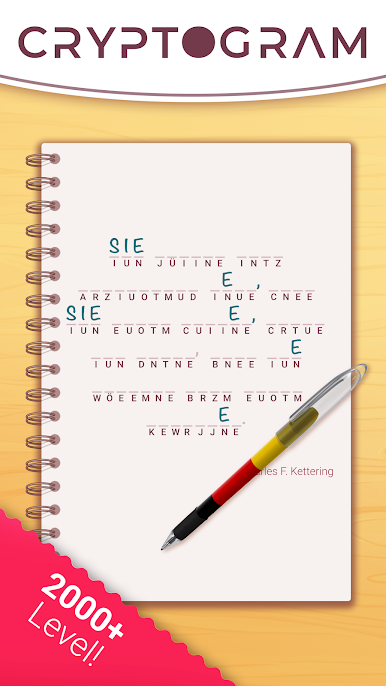 CRYPTOGRAM
SIE
IUN JÜIINE INTZ
E ,
ARZIUOTMUD INUE, CNEE
SIE E ,
IUN EUOTM CUIINE, CRTUE
E
IUN DNTNE, BNEE IUN
WÖEEMNE BRZM EUOTM
E .
KEWRJJNE.
rles F. Kettering
2000+
Level!